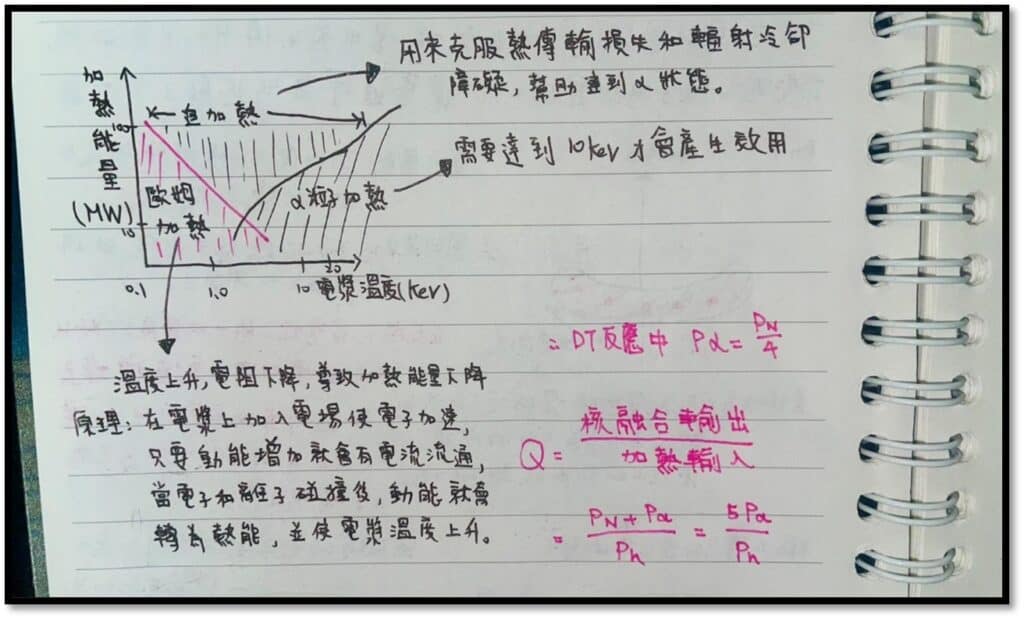 用來克服熱傳輸損失和輻射冷卻
障礙，幫助達到α狀態。
加熱能量(MW)
自加熱
需要達到 10keV 才會產生效用
歐姆
加熱
α粒子加熱
10
0.1 1.0 10 20
電漿溫度(keV)
∵ DT反應中 Pα = PN/4
溫度上升，電阻下降，導致加熱能量下降
原理：在電漿上加入電場使電子加速，
只要動能增加就會有電流流通，
當電子和離子碰撞後，動能就會
轉為熱能，並使電漿溫度上升。
Q = 核融合輸出/加熱輸入
= PN + Pα/Ph = 5Pα/Ph